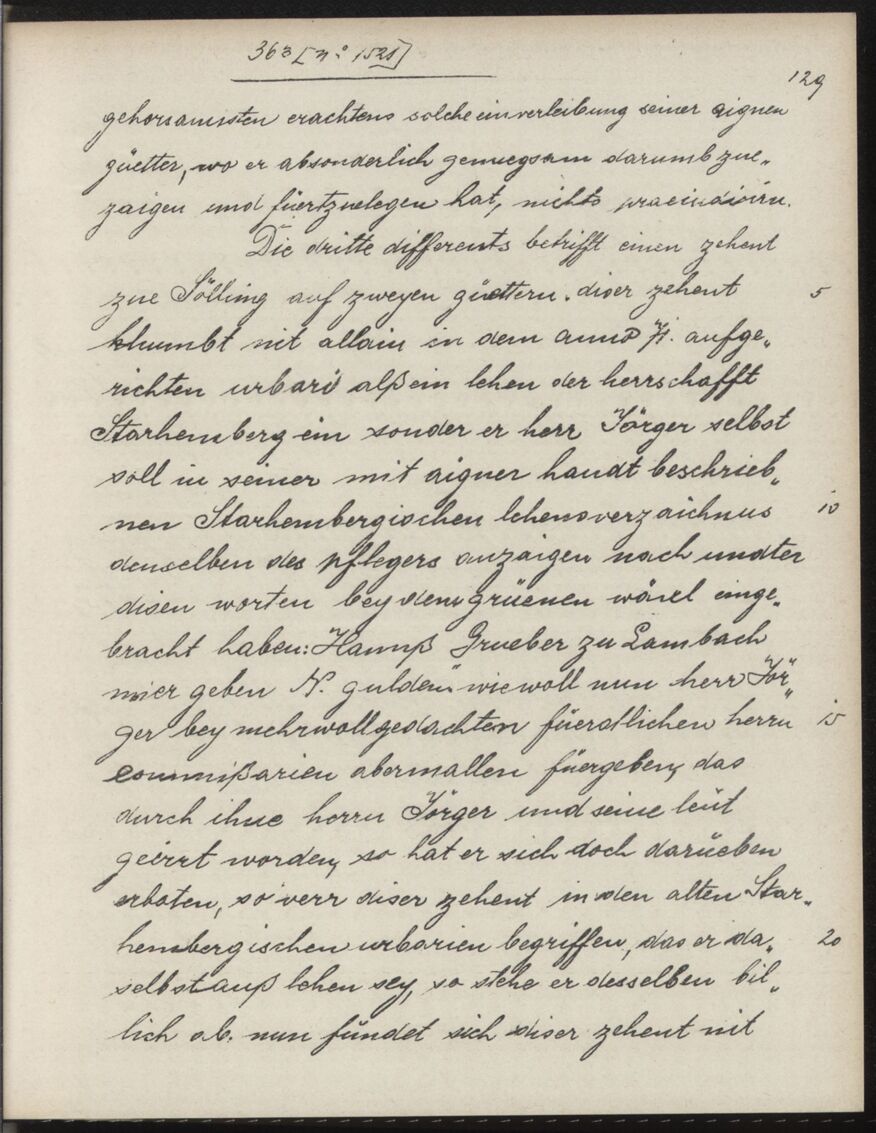 363 [n° 1528]
129
gehorsamisten erachtens solche einverleibung seiner aignen
güetter, wo er absonderlich genuegsam darumb zue„
zaigen und füertzuelegen hat, nichts praeiudiciern.
Die dritte differents betrifft einen zehent
zue Sölling auf zweyen güettern. diser zehent 5
khumbt nit allain in dem anno 71. aufge„
richten urbari alß ein lehen der herrschafft
Starhemberg ein sonder er herr Jörger selbst
soll in seiner mit aigner handt beschrieb„
nen Starhembergischen lehensverzaichnus 10
denselben des pflegers anzaigen nach undter
disen worten bey dem grüenen wäxel einge„
bracht haben: Hannß Grueber zu Lambach
mier geben N. gulden“ wiewoll nun herr Jör„
ger bey mehrwollgedachten füerstlichen herrn 15
commißarien abermallen füergeben, das
durch ihne herrn Jörger und seine leüt
geirrt worden, so hat er sich doch darüeben
erboten, so verr diser zehent in den alten Star„
hembergischen urbarien begriffen, das er da„ 20
selbst auß lehen sey, so stehe er desselben bil„
lich ab. nun fündet sich diser zehent nit